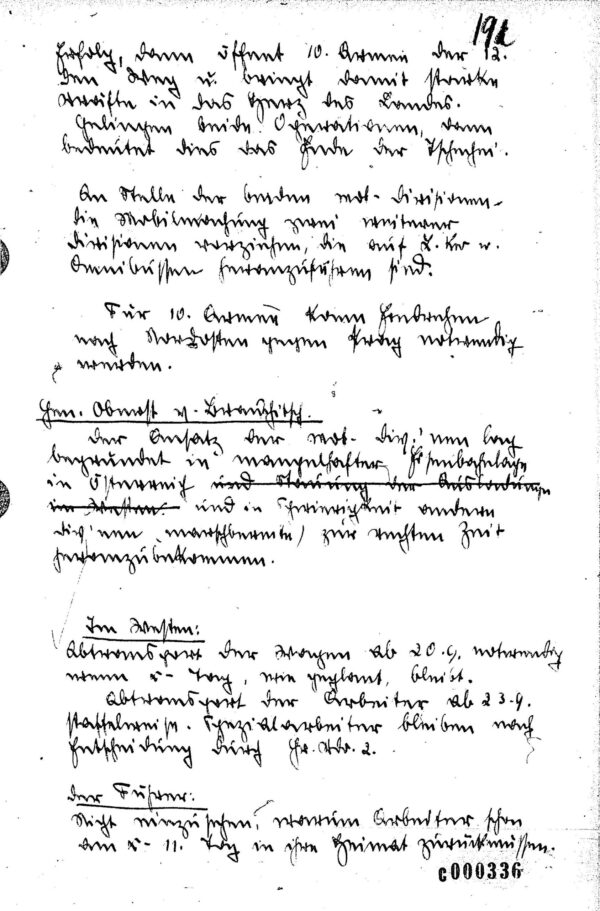 192
Erfolg, dann öffnet 10. Armee der 12.
den Weg u. bringt damit starke
Kräfte in das Herz des Landes.
Gelingen beide Operationen, dann
bedeutet dies das Ende der Tschechei.
An Stelle der beiden mot. Divisionen
die Mobilmachung zwei weiterer
Divisionen vorziehen, die auf L. Kw u.
Omnibussen heranzuführen sind.
Für 10. Armee kann Eindrehen
nach Nordosten gegen Prag notwendig
werden.
Gen. Oberst v. Brauchitsch.
Der Einsatz der mot. Div.'nen lag
begründet in mangelhafter Eisenbahnlage
in Österreich und Stauung der Ausladungen
im Westen und in Schwierigkeit andere
Div'nen (marschbereite) zur rechten Zeit
heranzubekommen.
Im Westen:
Abtransport der Wagen ab 20.9. notwendig
wenn x-Tag, wie geplant, bleibt.
Abtransport der Arbeiter ab 23.9.
staffelweise. Spezialarbeiter bleiben nach
Entscheidung durch Gr. Kdo. 2.
Der Führer:
Nicht einzusehen, warum Arbeiter schon
am x-11. Tag in ihre Heimat zurückmüssen.
c000336